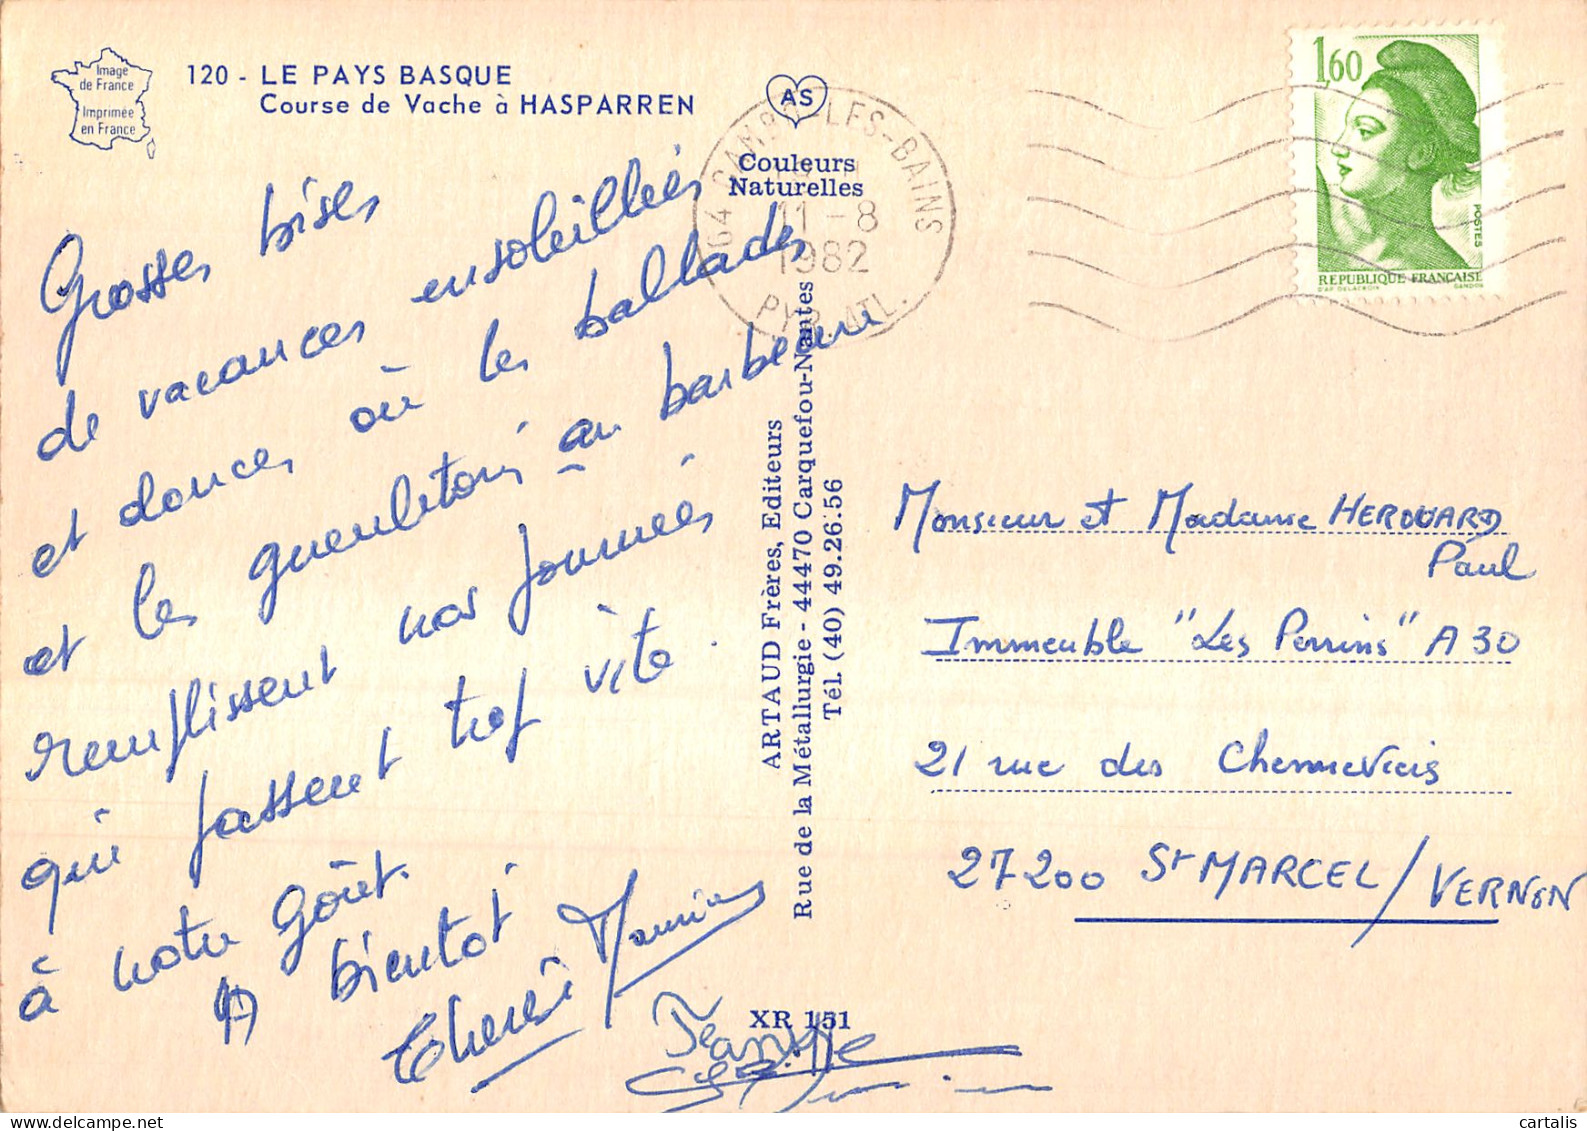 Image
de France
Imprimée
en France
120 - LE PAYS BASQUE
Course de Vache à HASPARREN
AS
Couleurs
Naturelles
64 CAMBO-LES-BAINS
11-8
1982
PYR. ATL.
1,60
POSTES
REPUBLIQUE FRANÇAISE
D'AP. DELACROIX GANDON
Grosses bises
de vacances ensoleillées
et douces où les ballades
et les gueuletons au barbecue
remplissent nos journées
qui passent trop vite.
à notre goût.
A bientôt
Thérèse Maurice
ARTAUD Frères, Editeurs
Rue de la Métallurgie - 44470 Carquefou-Nantes
Tél. (40) 49.26.56
XR 151
Monsieur et Madame HEROUARD
Paul
Immeuble "Les Perrins" A30
21 rue des Chennevieis
27200 St MARCEL/VERNON
delcampe.net
cartalis